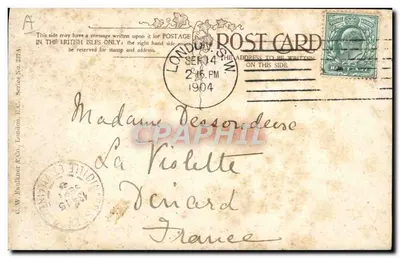 A
This side may have a message written upon it for POSTAGE
IN THE BRITISH ISLES ONLY: the right hand side
be reserved for stamp and address.
POST CARD
THE ADDRESS TO BE WRITTEN
ON THIS SIDE.
LONDON S.W.
SEP 14
2.15 PM
1904
Madame Dessoudeise
La Violette
Dinard
France
C. W. Faulkner & Co., London, E.C. Series No.
CPAPHIL.com